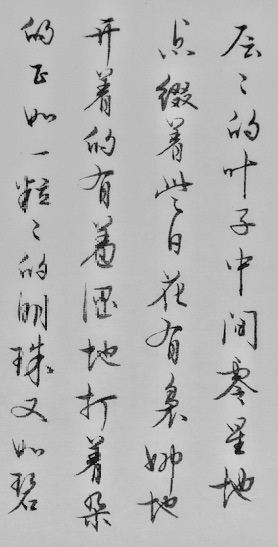 层々的叶子中间零星地
点缀着些白花有袅娜地
开着的有羞涩地打着朵
的正如一粒々的明珠又如碧